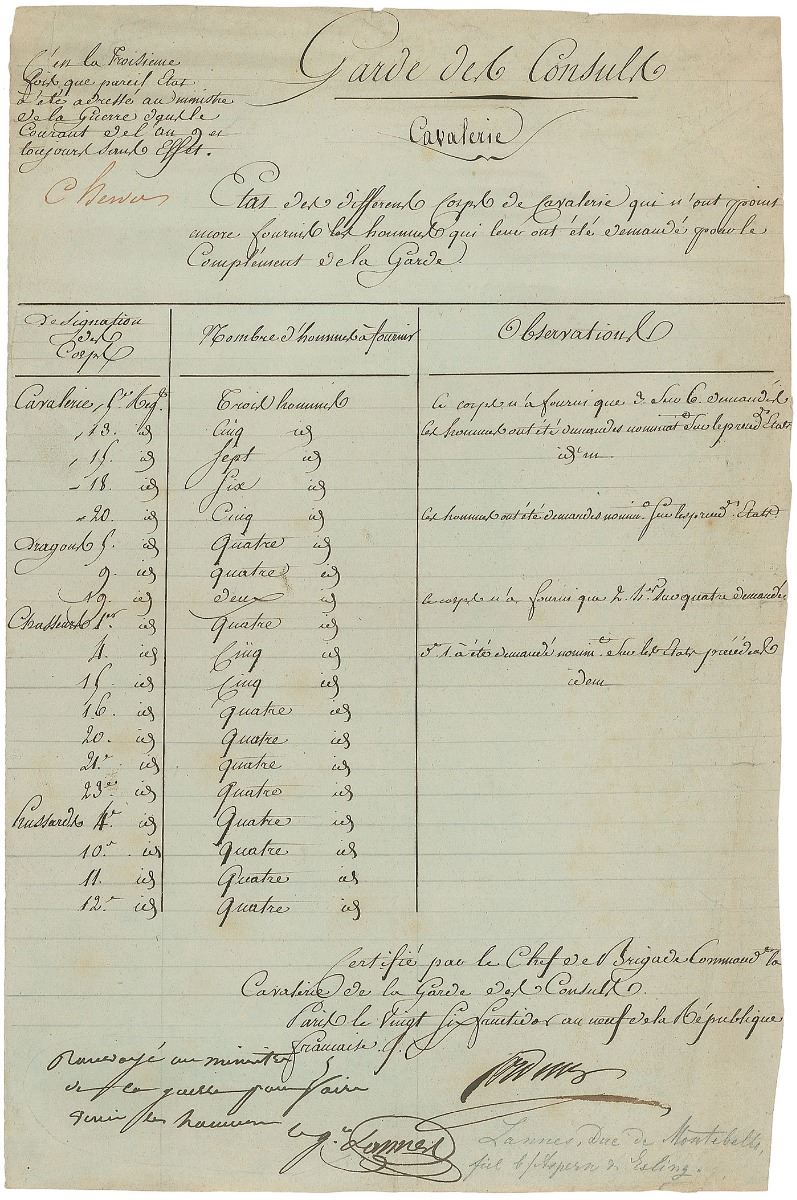 C'est la Troisieme
fois que pareil Etat
a été adressé au ministre
de la Guerre dans le
Courant de l'an 9 et
toujours sans Effet.
Garde des Consuls
Cavalerie
Etat des differens Corps de Cavalerie qui n'ont point
encore fournis les hommes qui leur ont été demandé pour le
Complément de la Garde
Designation des Corps
Nombre d'hommes à fournir
Observations
Cavalerie, 5.e Reg.t Trois hommes le corps n'a fourni que 3. sur 6. demandés
13. id Cinq id les hommes ont été demandés nominat.t sur les préced.ts Etats
15. id Sept id idem
18. id Six id
20. id Cinq id les hommes ont été demandés nomin.t sur les preced.ts Etats
Dragons 5. id Quatre id
9. id quatre id
19. id deux id le corps n'a fourni que 2. h.es sur quatre demandés
Chasseurs 1.er id Quatre id
4. id Cinq id 1 à été demandé nomin.t sur les Etats précédens
15. id Cinq id idem
16. id quatre id
20. id Quatre id
21.e id quatre id
23.e id Quatre id
hussards 4.e id Quatre id
10.e id quatre id
11. id Quatre id
12.e id Quatre id
Certifié par le Chef de Brigade Command.t la
Cavalerie de la Garde des Consuls.
Paris le Vingt Six an neuf de la République
francaise.
Renvoyé au ministre
de la guerre pour faire
venir les hommes
le g.l Lannes
Lannes, Duc de Montebello,
fiel b/Aspern & Esling.